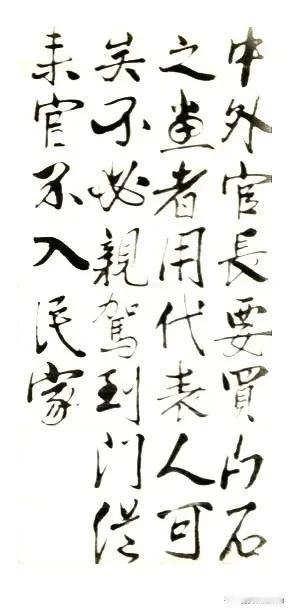 中外官長要買白石
之畫者用代表人可
矣不必親駕到門從
来官不入民家